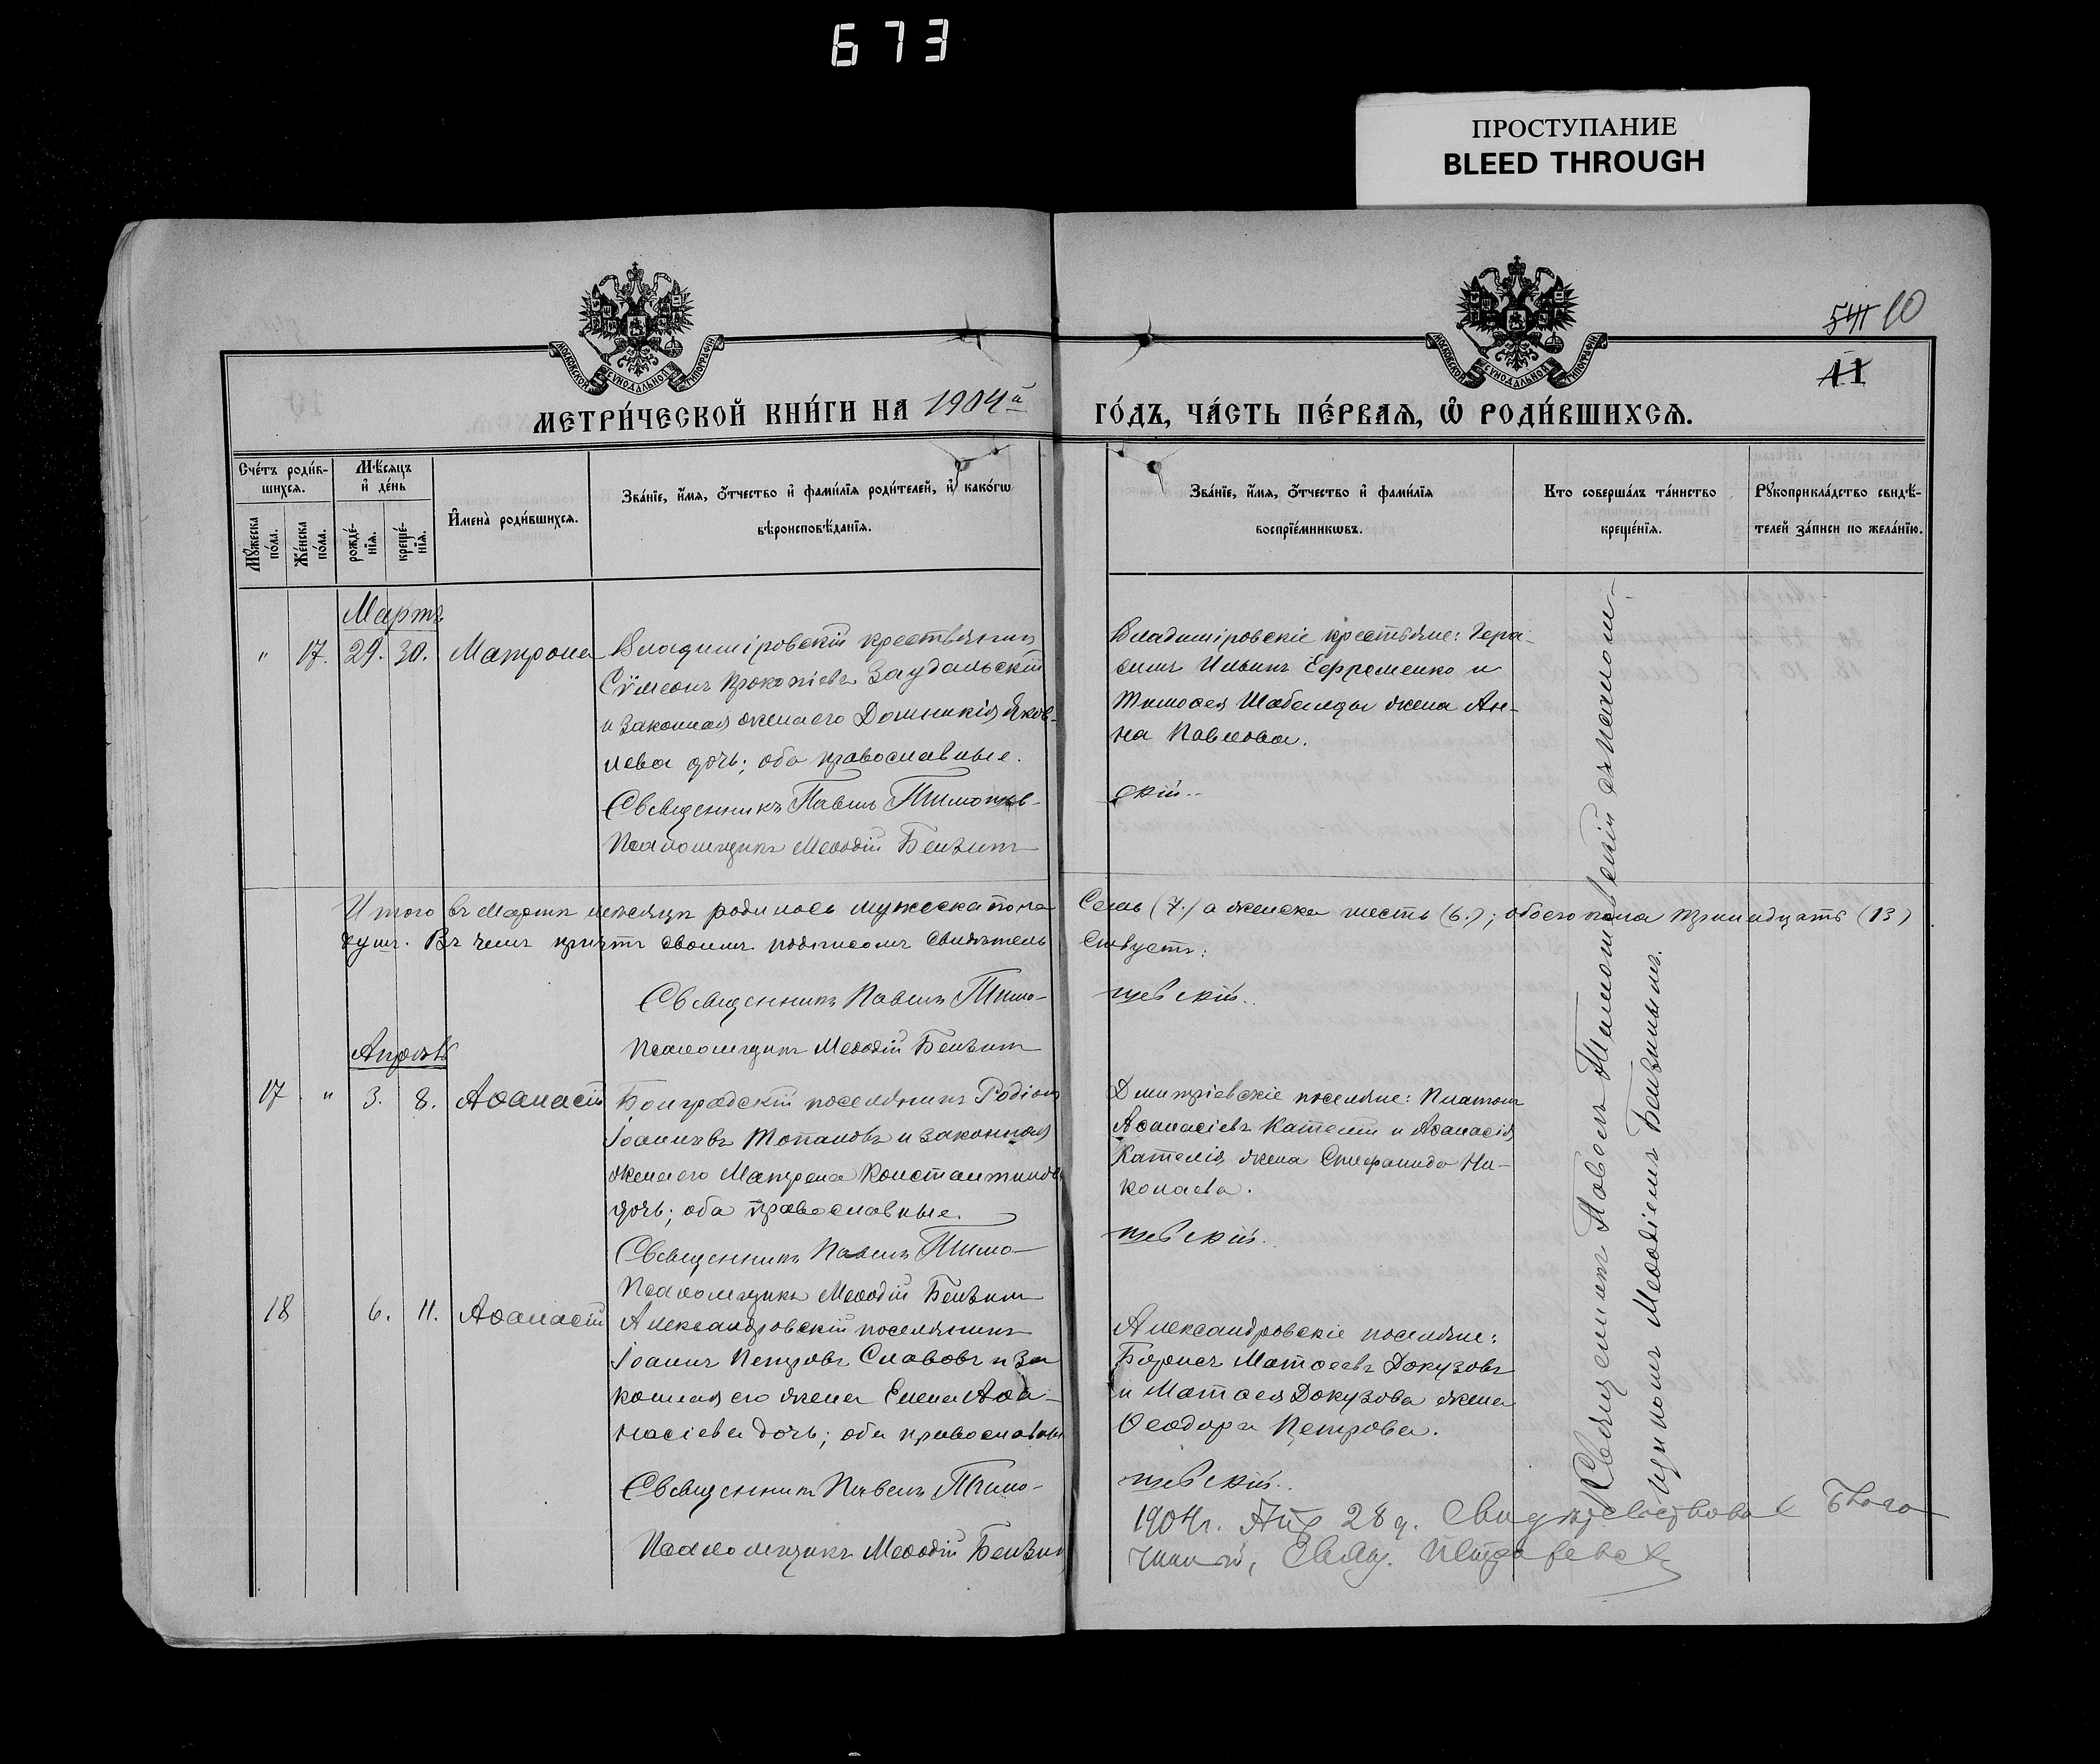 673
ПРОСТУПАНИЕ
BLEED THROUGH
541 10
11
МОСКОВСКОЙ СѴНОДАЛЬНОЙ ТИПОГРАФІИ
МОСКОВСКОЙ СѴНОДАЛЬНОЙ ТИПОГРАФІИ
МЕТРИ́ЧЕСКОЙ КНИ́ГИ НА 1904й ГО́ДЪ, ЧА́СТЬ ПЕ́РВАѦ, Ѽ РОДИ́ВШИХСѦ.
Сче́тъ роди́в-
шихсѧ.
Мꙋ́жеска по́ла.
Же́нска по́ла.
Мѣ́сѧцъ и҆ де́нь
рожде́-нїѧ.
креще́-нїѧ.
И҆мена̀ роди́вшихсѧ.
Зва́нїе, и҆́мѧ, ѻ҆́тчество и҆ фами́лїѧ роди́телей, и҆ како́гѡ
вѣроисповѣ́данїѧ.
Зва́нїе, и҆́мѧ, ѻ҆́тчество и҆ фами́лїѧ
воспрїе́мникѡвъ.
Кто соверша́лъ та́инство
креще́нїѧ.
Рꙋкоприкла́дство свидѣ́-
телей за́писи по жела́нїю.
Мартъ
" 17. 29. 30. Матрона
Владиміровскій крестьянинъ
Сѵмеонъ Прокопіевъ Заудальскій
и законная жена его Домникія Яков-
лева дочь; оба православные.
Священникъ Павелъ Тимошев-
Псаломщикъ Меѳодій Бензин
Владиміровскіе крестьяне: Гера-
симъ Ильинъ Ефременко и
Тимоѳея Шабельды жена Ан-
на Павлова.
скій.
Итого въ Мартѣ мѣсяцѣ родилось мужеска пола Семь (7.) а женска шесть (6.); обоего пола тринадцать (13)
душъ. Въ чемъ причтъ своимъ подписомъ свидѣтель ствуетъ:
Священникъ Павелъ Тимо- шевскій.
Псаломщикъ Меѳодій Бензин
Апрѣль
17 " 3. 8. Аѳанасій
Болградскій поселянинъ Родіонъ
Іоанновъ Топаловъ и законная
жена его Матрона Константинова
дочь; оба православные.
Священникъ Павелъ Тимо-
Псаломщикъ Меѳодій Бензин
Дмитріевскіе поселяне: Платонъ
Аѳанасіевъ Кателли и Аѳанасія
Кателія жена Стефанида Ни-
колаева.
шевскій.
18 6. 11. Аѳанасій
Александровскій поселянинъ
Іоаннъ Петровъ Славовъ и за
конная его жена Елена Аѳа-
насіева дочь; оба православные
Священникъ Павелъ Тимо-
Псаломщикъ Меѳодій Бензин
Александровскіе поселяне:
Борисъ Матѳеевъ Докузовъ
и Матѳея Докузова жена
Ѳеодора Петрова.
шевскій.
Священникъ Павелъ Тимошевскій съ псалом-
щикомъ Меѳодіемъ Бензинымъ.
1904г. Апр 28 д. Свидѣтельствовал Благо
чинный, Свящ.